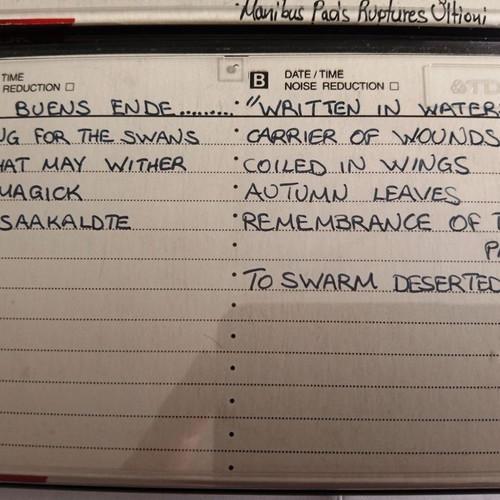 Manibus Pads Ruptures Ultioni
TIME
REDUCTION
B DATE / TIME
NOISE REDUCTION
TDK
BUENS ENDE.........."WRITTEN IN WATER
NG FOR THE SWANS
CARRIER OF WOUNDS
HAT MAY WITHER
COILED IN WINGS
MAGICK
AUTUMN LEAVES
SAAKALDTE
REMEMBRANCE OF T
PA
TO SWARM DESERTED